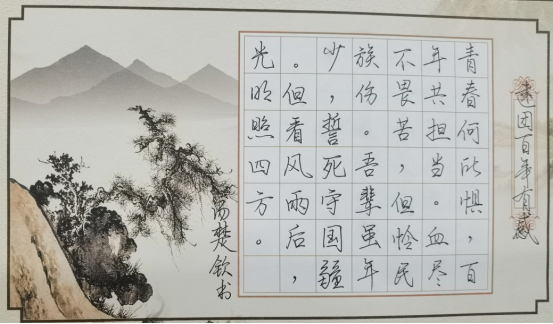 建团百年有感
青春何所惧，百
年共担当。血尽
不畏苦，但怜民
族伤。吾辈虽年
少，誓死守国疆
。但看风雨后，
光明照四方。
楚钦书